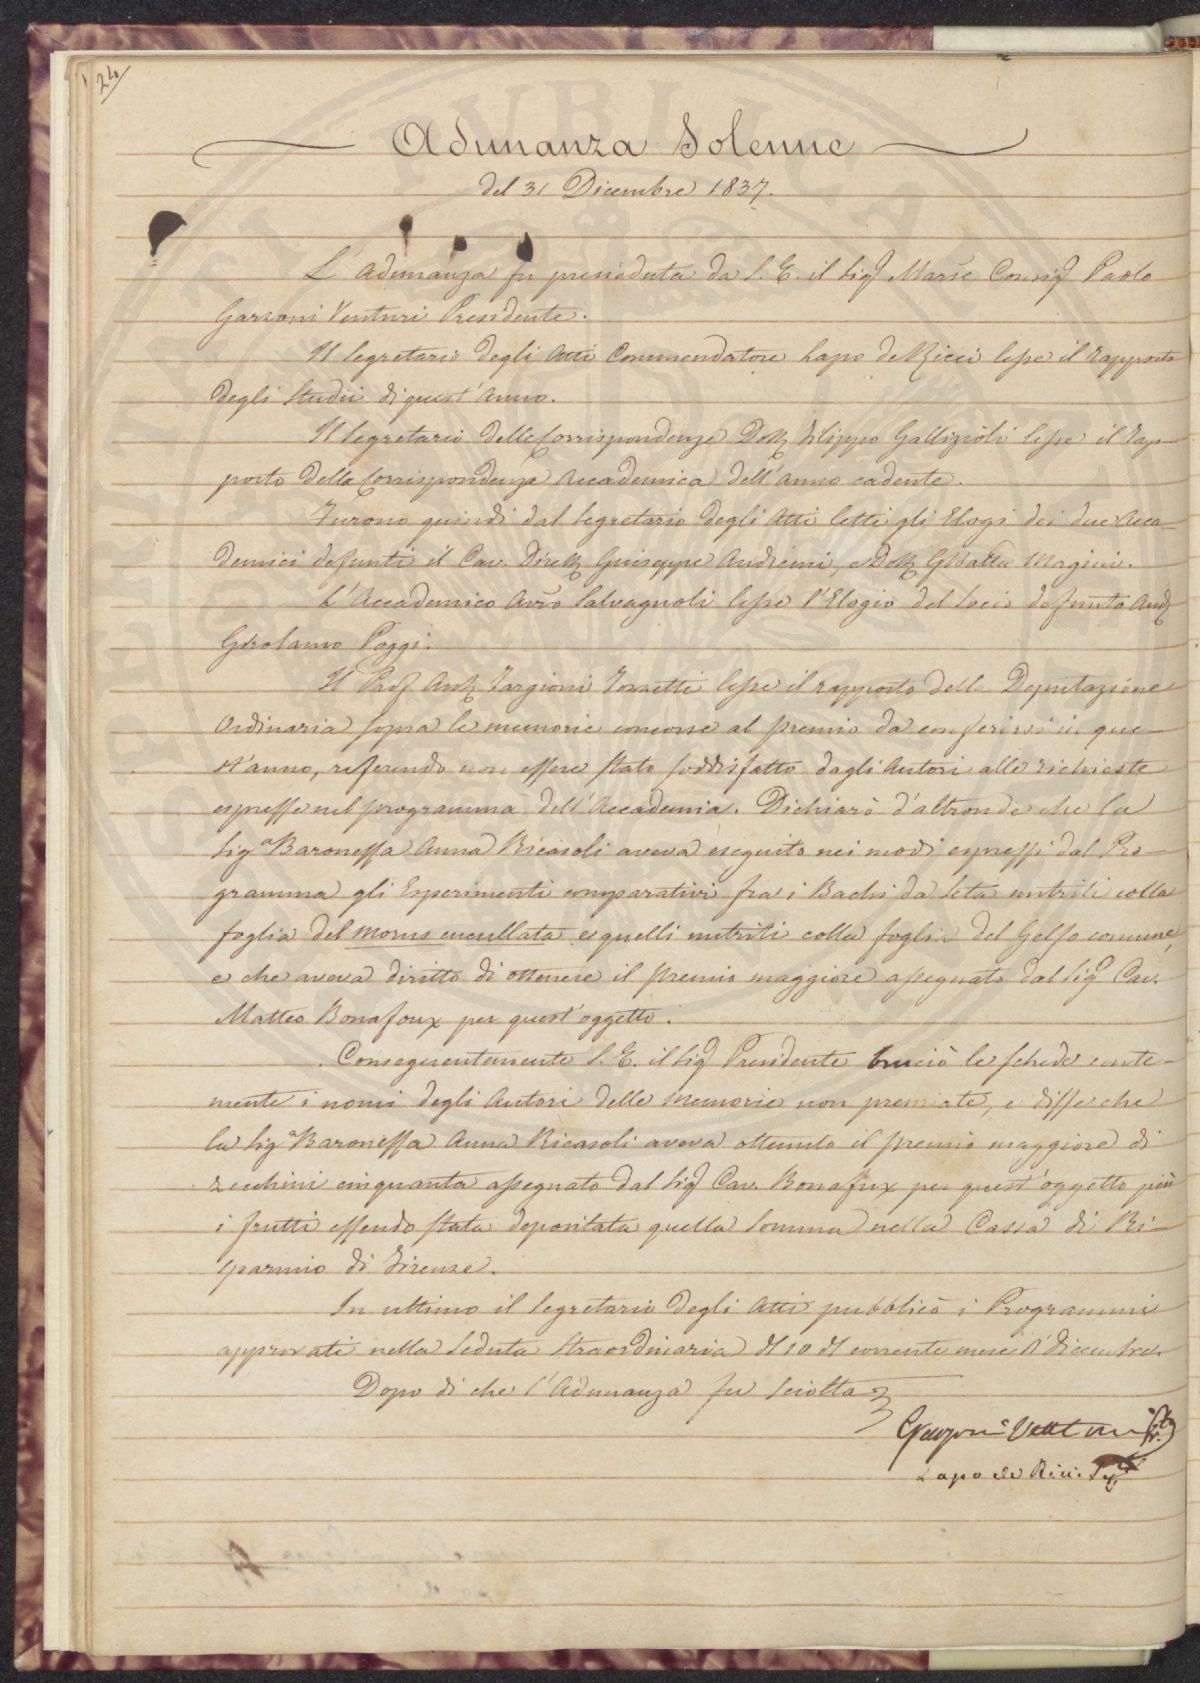 24
Adunanza Solenne
del 31 Dicembre 1837.
L'Adunanza fu presieduta da S. E. il Sig. Marse Consig. Paolo
Garzoni Venturi Presidente.
Il Segretario degli Atti Commendatore Lapo de Ricci lesse il rapporto
degli Studii di quest'anno.
Il Segretario delle Corrispondenze Dott. Filippo Gallizioli lesse il rap-
porto della Corrispondenza Accademica dell'anno cadente.
Furono quindi dal Segretario degli Atti letti gli Elogi dei due Acca-
demici defunti il Cav. Dirett. Guiseppe Andreini, e Dott. GBatta Magini.
L'Accademico Avvo Salvagnoli lesse l'Elogio del Socio defunto Aud.
Girolamo Poggi.
Il Prof. Ant. Targioni Tozzetti lesse il rapporto della Deputazione
Ordinaria sopra le memorie concorse al premio da conferirsi in que-
st'anno, referendo non essere stato soddisfatto dagli Autori alle richieste
espresse nel programma dell'Accademia. Dichiarò d'altronde che la
Siga Baronessa Anna Ricasoli aveva eseguito nei modi espressi dal Pro-
gramma gli Esperimenti comparativi fra i Bachi da Seta nutriti colla
foglia del morus cucullata e quelli nutriti colla foglia del Gelso comune,
e che aveva diritto di ottenere il premio maggiore assegnato dal Sigo Cav.
Matteo Bonafoux per quest'oggetto.
Conseguentemente S. E. il Sig. Presidente bruciò le schede conte-
nente i nomi degli Autori delle Memorie non premiate, e disse che
la Siga Baronessa Anna Ricasoli aveva ottenuto il premio maggiore di
zecchini cinquanta assegnato dal Sig. Cav. Bonafux per quest'oggetto più
i frutti essendo stata depositata quella Somma nella Cassa di Ri-
sparmio di Firenze.
In ultimo il Segretario degli Atti pubblicò i Programmi
approvati nella Seduta Straordinaria del 10 del corrente mese di dicembre.
Dopo di che l'Adunanza fu sciolta
Garzoni Venturi
Lapo de Ricci